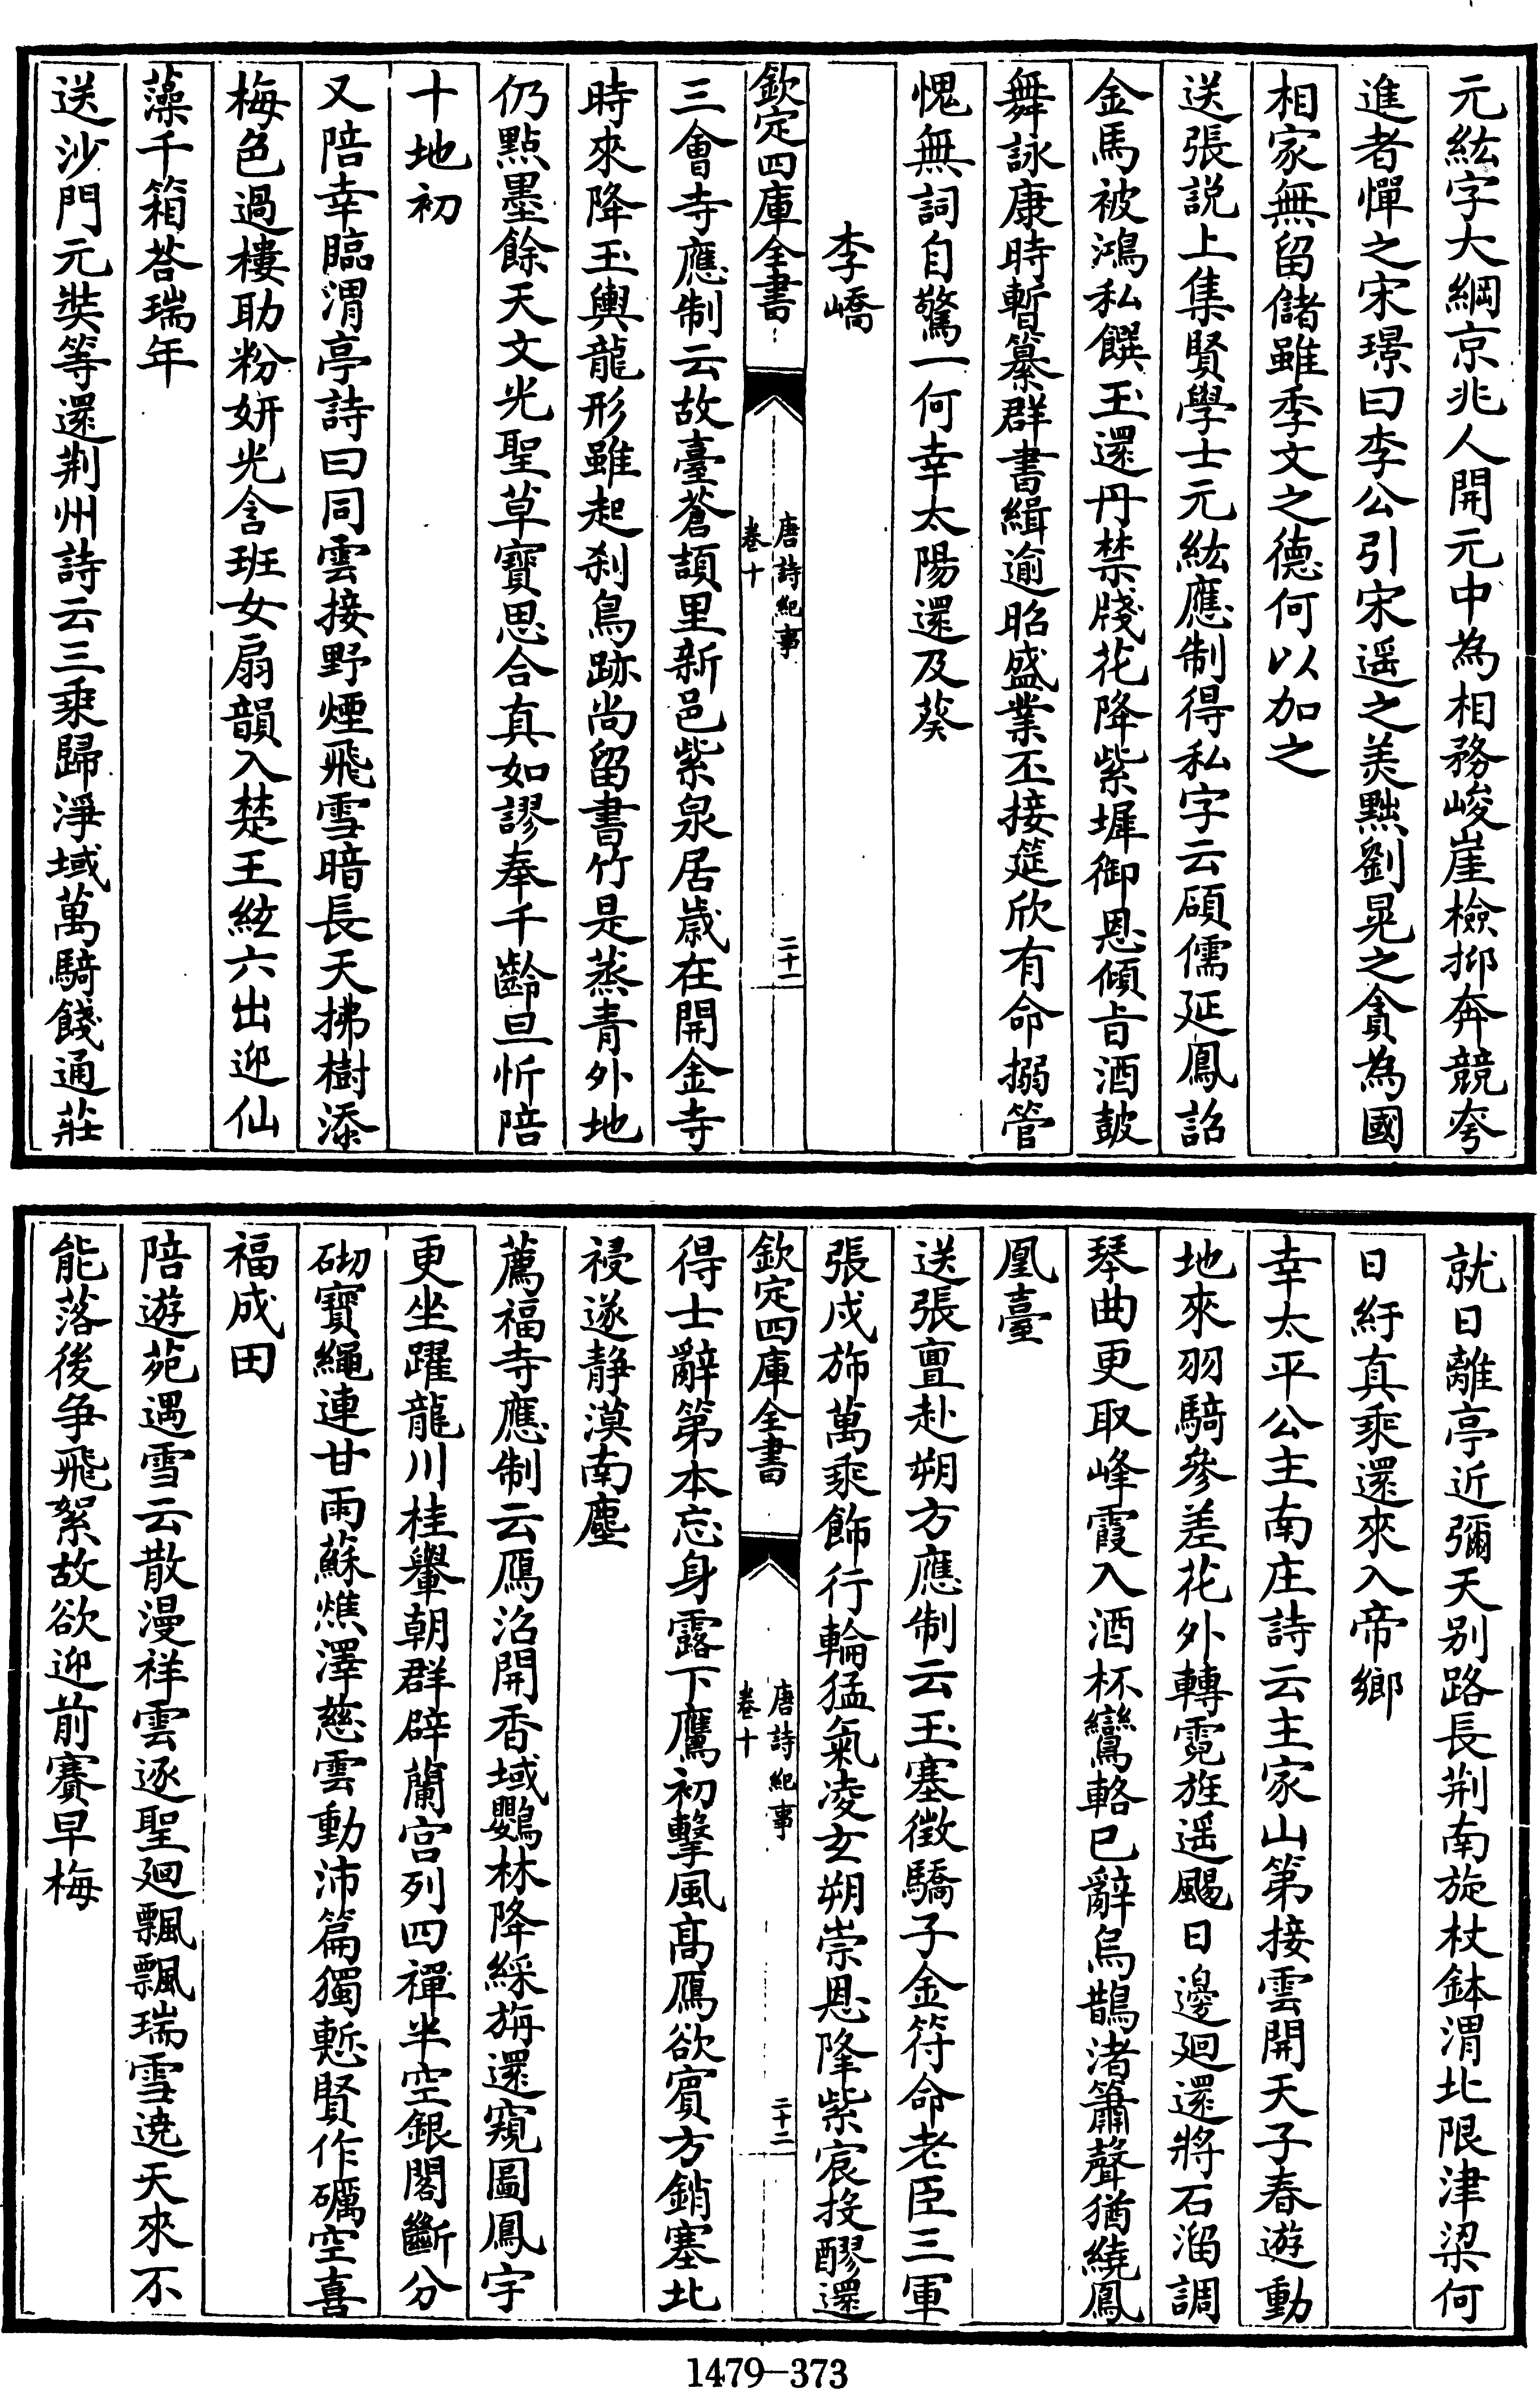 元紘字大綱京兆人開元中為相務峻崖檢抑奔競夸
進者憚之宋璟曰李公引宋遥之美黜劉晃之貪為國
相家無留儲雖季文之德何以加之
送張説上集賢學士元紘應制得私字云碩儒延鳳詔
金馬被鴻私饌玉還丹禁牋花降紫墀御恩傾旨酒鼓
舞詠康時暫纂群書緝逾昭盛業丕接筵欣有命搦管
愧無詞自驚一何幸太陽還及葵
李嶠
欽定四庫全書
唐詩紀事
卷十
二十一
三會寺應制云故臺蒼頡里新邑紫泉居歳在開金寺
時來降玉輿龍形雖起刹鳥跡尚留書竹是蒸青外地
仍點墨餘天文光聖草寶思合真如謬奉千齡旦忻陪
十地初
又陪幸臨渭亭詩曰同雲接野煙飛雪暗長天拂樹添
梅色過樓助粉妍光含班女扇韻入楚王絃六出迎仙
藻千箱荅瑞年
送沙門元奘等還荆州詩云三乘歸淨域萬騎餞通莊
就日離亭近彌天别路長荆南旋杖鉢渭北限津梁何
日紆真乘還來入帝鄉
幸太平公主南庄詩云主家山第接雲開天子春遊動
地來羽騎參差花外轉霓旌遥颺日邊廻還將石溜調
琴曲更取峰霞入酒杯鸞輅已辭烏鵲渚簫聲猶繞鳳
凰臺
送張亶赴朔方應制云玉塞徵驕子金符命老臣三軍
張戍斾萬乘飾行輪猛氣凌玄朔崇恩降紫宸投醪還
欽定四庫全書
唐詩紀事
卷十
二十二
得士辭第本忘身露下鷹初擊風髙鴈欲賓方銷塞北
祲遂静漠南塵
薦福寺應制云鴈沼開香域鸚林降綵旃還窺圖鳳宇
更坐躍龍川桂轝朝群辟蘭宫列四禪半空銀閣斷分
砌寶繩連甘雨蘇燋澤慈雲動沛篇獨慙賢作礪空喜
福成田
陪遊苑遇雪云散漫祥雲逐聖廻飄飄瑞雪遶天來不
能落後爭飛絮故欲迎前賽早梅
1479-373